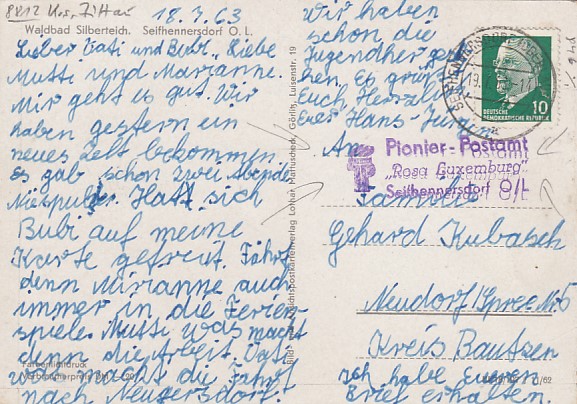 8812 Krs. Zittau
18.7.63
Waldbad Silberteich. Seifhennersdorf O. L.
Lieber Vati und Bubi, Liebe
Mutti und Marianne.
Mir geht es gut. Wir
haben gestern ein
neues Zelt bekommen.
Es gab schon zwei Abende
Hatt sich
Bubi auf meine
Karte gefreut. Fährt
denn Marianne auch
immer in die Ferien-
spiele. Mutti was macht
denn die Arbeit. Vati
was macht die Fahrt
nach
Wir haben
schon die
Jugendher
Es grüßt
Euch Herzlich
Euer Hans-Jürgen
An
Familie
Gehard Kubasch
Neudorf/Spree Nr. 5
Kreis Bautzen
ich habe Eueren
Brief erhalten.
10
DEUTSCHE
DEMOKRATISCHE REPUBLIK
19.7.
Pionier-Postamt
„Rosa Luxemburg"
Seifhennersdorf O/L
Görlitz, Luisenstr. 19